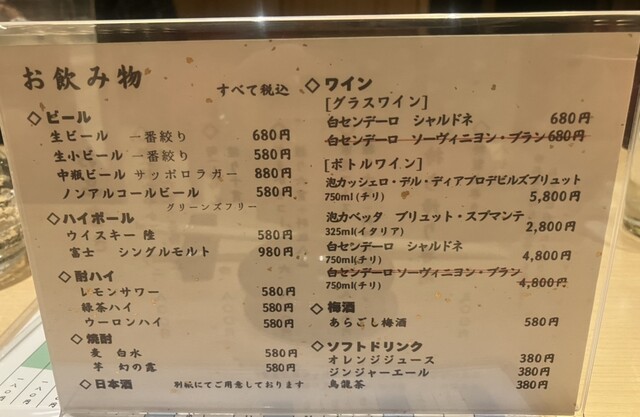 お飲み物
すべて税込
◇ビール
生ビール 一番絞り 680円
生小ビール 一番絞り 580円
中瓶ビール サッポロラガー 880円
ノンアルコールビール 580円
グリーンズフリー
◇ハイボール
ウイスキー 陸 580円
富士 シングルモルト 980円
◇酎ハイ
レモンサワー 580円
緑茶ハイ 580円
ウーロンハイ 580円
◇焼酎
麦 白水 580円
芋 幻の露 580円
◇日本酒 別紙にてご用意しております
◇ワイン
[グラスワイン]
白センデーロ シャルドネ 680円
白センデーロ ソーヴィニヨン・ブラン 680円
[ボトルワイン]
泡カッシェロ・デル・ディアブロデビルズブリュット
750ml(チリ) 5,800円
泡カベッタ ブリュット・スプマンテ
325ml(イタリア) 2,800円
白センデーロ シャルドネ
750ml(チリ) 4,800円
白センデーロ ソーヴィニヨン・ブラン
750ml(チリ) 4,800円
◇梅酒
あらごし梅酒 580円
◇ソフトドリンク
オレンジジュース 380円
ジンジャーエール 380円
烏龍茶 380円